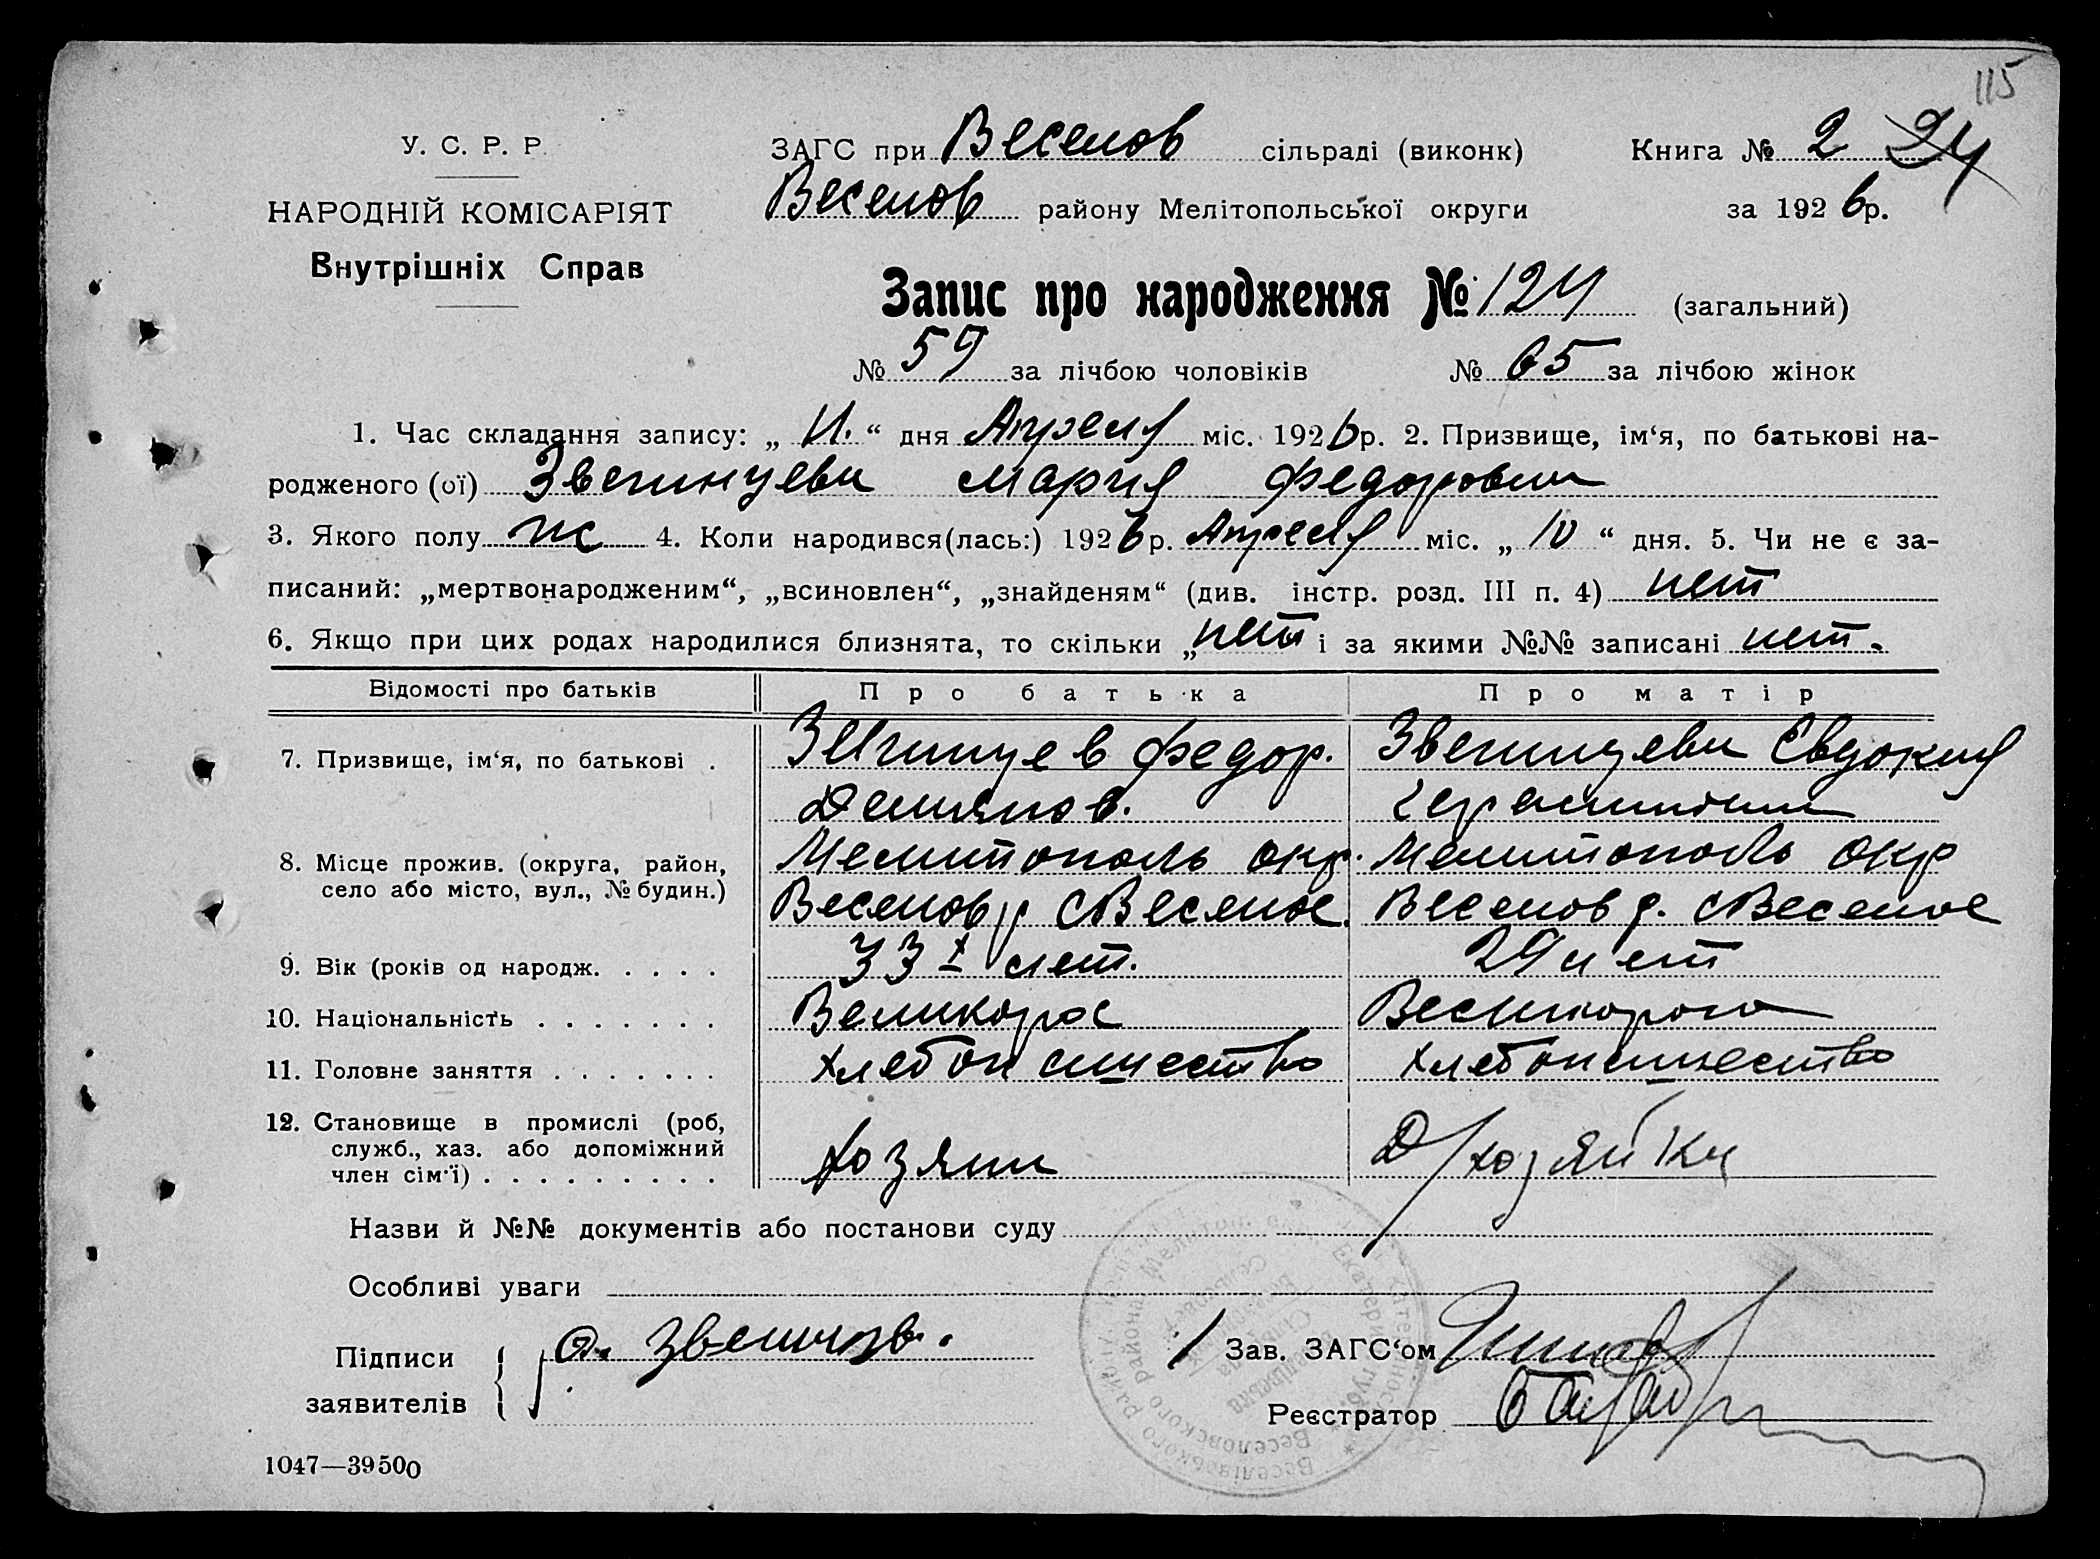 115
У. С. Р. Р.
НАРОДНІЙ КОМІСАРІЯТ
Внутрішніх Справ
ЗАГС при Веселов сільраді (виконк) Книга № 2 24
Веселов району Мелітопольської округи за 1926р.
Запис про народження № 124 (загальний)
№ 59 за лічбою чоловіків № 65 за лічбою жінок
1. Час складання запису: „ 11. “ дня Апреля міс. 1926р. 2. Призвище, ім‘я, по батькові на-
родженого (ої) Звегинцева Мария Федоровна
3. Якого полу ж 4. Коли народився(лась:) 1926р. Апреля міс. „ 10 “ дня. 5. Чи не є за-
писаний: „мертвонародженим“, „всиновлен“, „знайденям“ (див. інстр. розд. III п. 4) нет
6. Якщо при цих родах народилися близнята, то скільки „ нет і за якими №№ записані нет.
Відомості про батьків Про батька Про матір
7. Призвище, ім‘я, по батькові . Звегинцев Федор. Звегинцева Евдокия
Демянов.
8. Місце прожив. (округа, район, Мелитополь окр. Мелитополь окр
село або місто, вул., № будин.) Веселов р с Веселое. Веселов р. с Веселое
9. Вік (років од народж. . . . . 33 лет. 29 лет
10. Національність . . . . . . . Великорос Великороска
11. Головне заняття . . . . . . . Хлебопашество Хлебопашество
12. Становище в промислі (роб,
служб., хаз. або допоміжний
член сім‘ї) . . . . . . . . . Хозяин Д/хозяйка
Назви й №№ документів або постанови суду
Особливі уваги
Підписи
заявителів
Зав. ЗАГС‘ом
Реєстратор
1047—39500